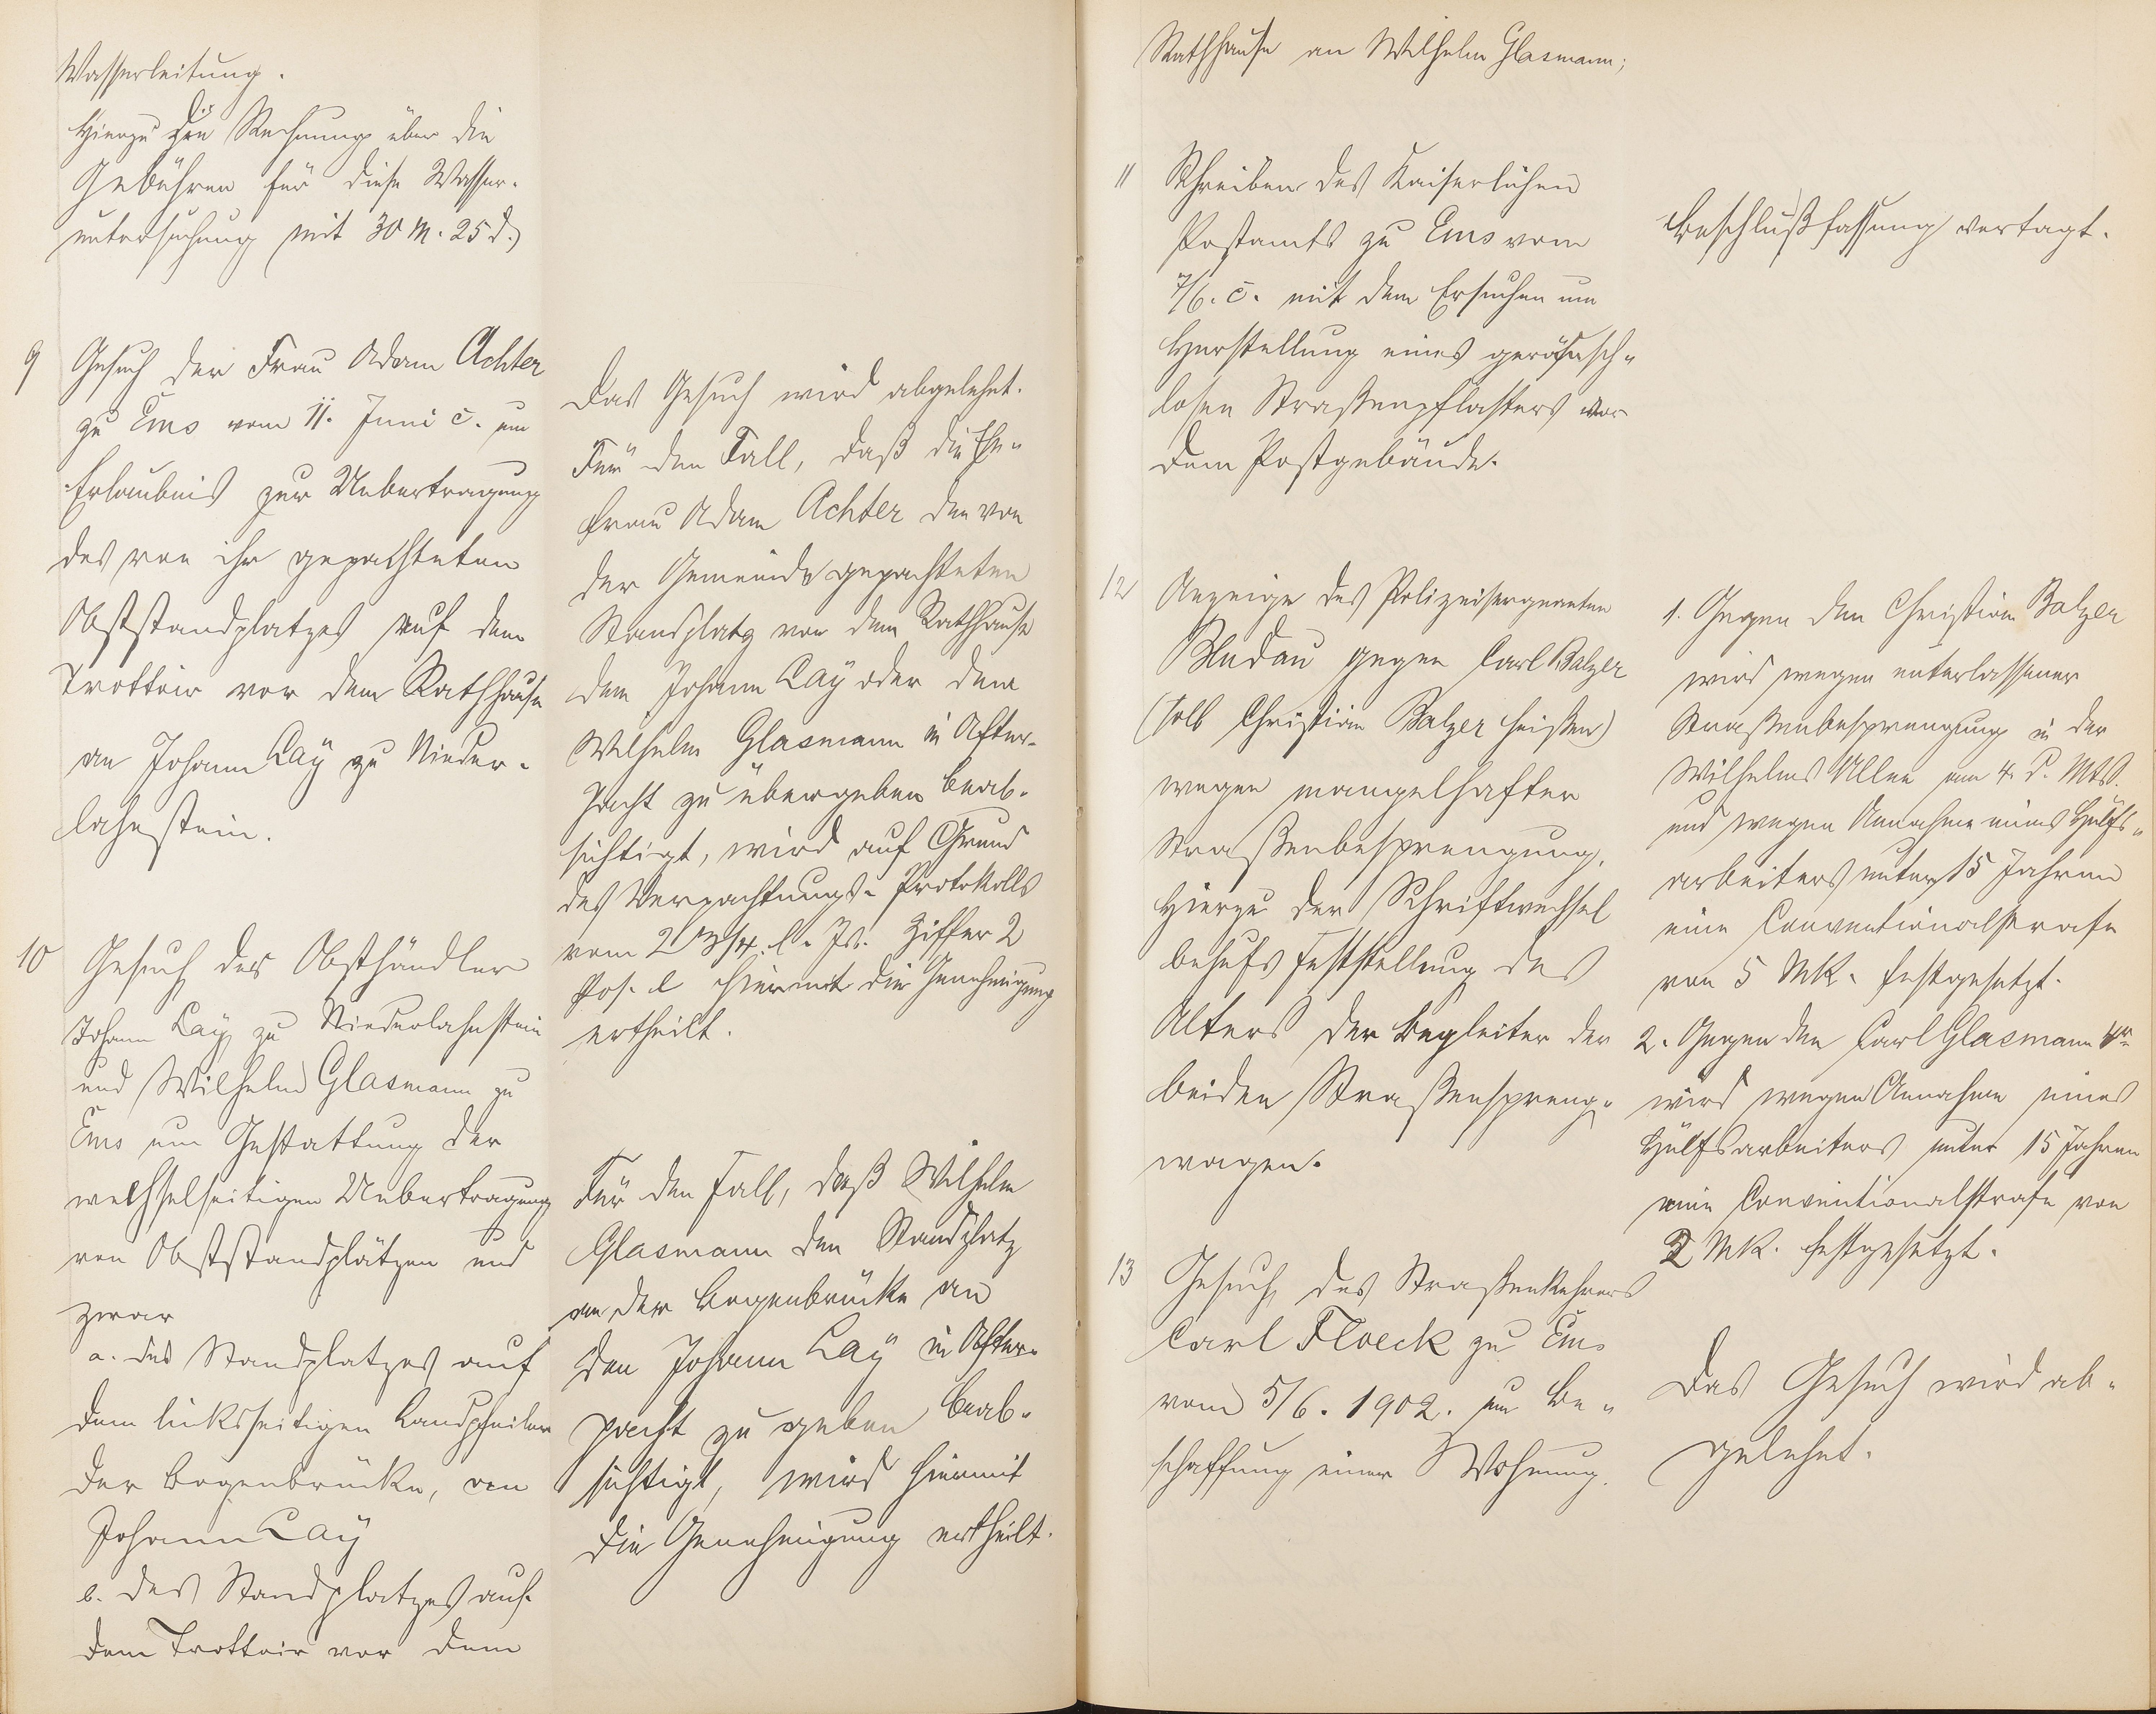 Wasserleitung.
Hierzu die Rechnung über die
Gebühren für diese Wasser-
untersuchung mit 30 M. 25 d.)
9 Gesuch der Frau Adam Achter
zu Ems vom 11. Juni c. um
Erlaubnis zur Uebertragung
des von ihr gepachteten
Obststandplatzes auf dem
Trottoir vor dem Rathhause
an Johann Lay zu Nieder-
lahnstein.
Das Gesuch wird abgelehnt.
Für den Fall, daß die Ehe-
frau Adam Achter den von
der Gemeinde gepachteten
Standplatz vor dem Rathhause
dem Johann Lay oder dem
Wilhelm Glasmann in After-
pacht zu übergeben beab-
sichtigt, wird auf Grund
des Verpachtungs-Protokolls
vom l. Js. Ziffer 2
Pos. l hiermit die Genehmigung
ertheilt.
10 Gesuch des Obsthändler
Johann Lay zu Niederlahnstein
und Wilhelm Glasmann zu
Ems um Gestattung der
wechselseitigen Uebertragung
von Obststandplätzen und
zwar
a. des Standplatzes auf
dem linksseitigen Landpfeiler
der Bogenbrücke, von
Johann Lay
b. des Standplatzes auf
dem Trottoir vor dem
Für den Fall, daß Wilhelm
Glasmann den Standplatz
an der Bogenbrücke an
den Johann Lay in After-
pacht zu geben beab-
sichtigt, wird hiermit
die Genehmigung ertheilt.
Rathhause an Wilhelm Glasmann;
11 Schreiben des Kaiserlichen
Postamts zu Ems vom
7/6. c. mit dem Ersuchen um
Herstellung eines geräusch-
losen Straßenpflasters vor
dem Postgebäude.
Beschlußfassung vertagt.
12 Anzeige des Polizeisergeanten
gegen Carl Balzer
(soll Christian Balzer heißen)
wegen mangelhafter
Straßenbesprengung.
Hierzu der Schriftwechsel
behufs Feststellung des
Alters der Begleiter der
beiden Straßenspreng-
wagen.
1. Gegen den Christian Balzer
wird wegen unterlassener
Straßenbesprengung in der
Wilhelms Allee am 4. d. Mts.
und wegen Annahme eines Hülfs-
arbeiters unter 15 Jahren
eine Conventionalstrafe
von 5 MK. festgesetzt.
2. Gegen den Carl Glasmann 4r
wird wegen Annahme eines
Hülfsarbeiters unter 15 Jahren
eine Conventionalstrafe von
2 MK. festgesetzt.
13 Gesuch des Straßenkehrers
Carl Floeck zu Ems
vom 5/6. 1902. um Be-
schaffung einer Wohnung.
Das Gesuch wird ab-
gelehnt.